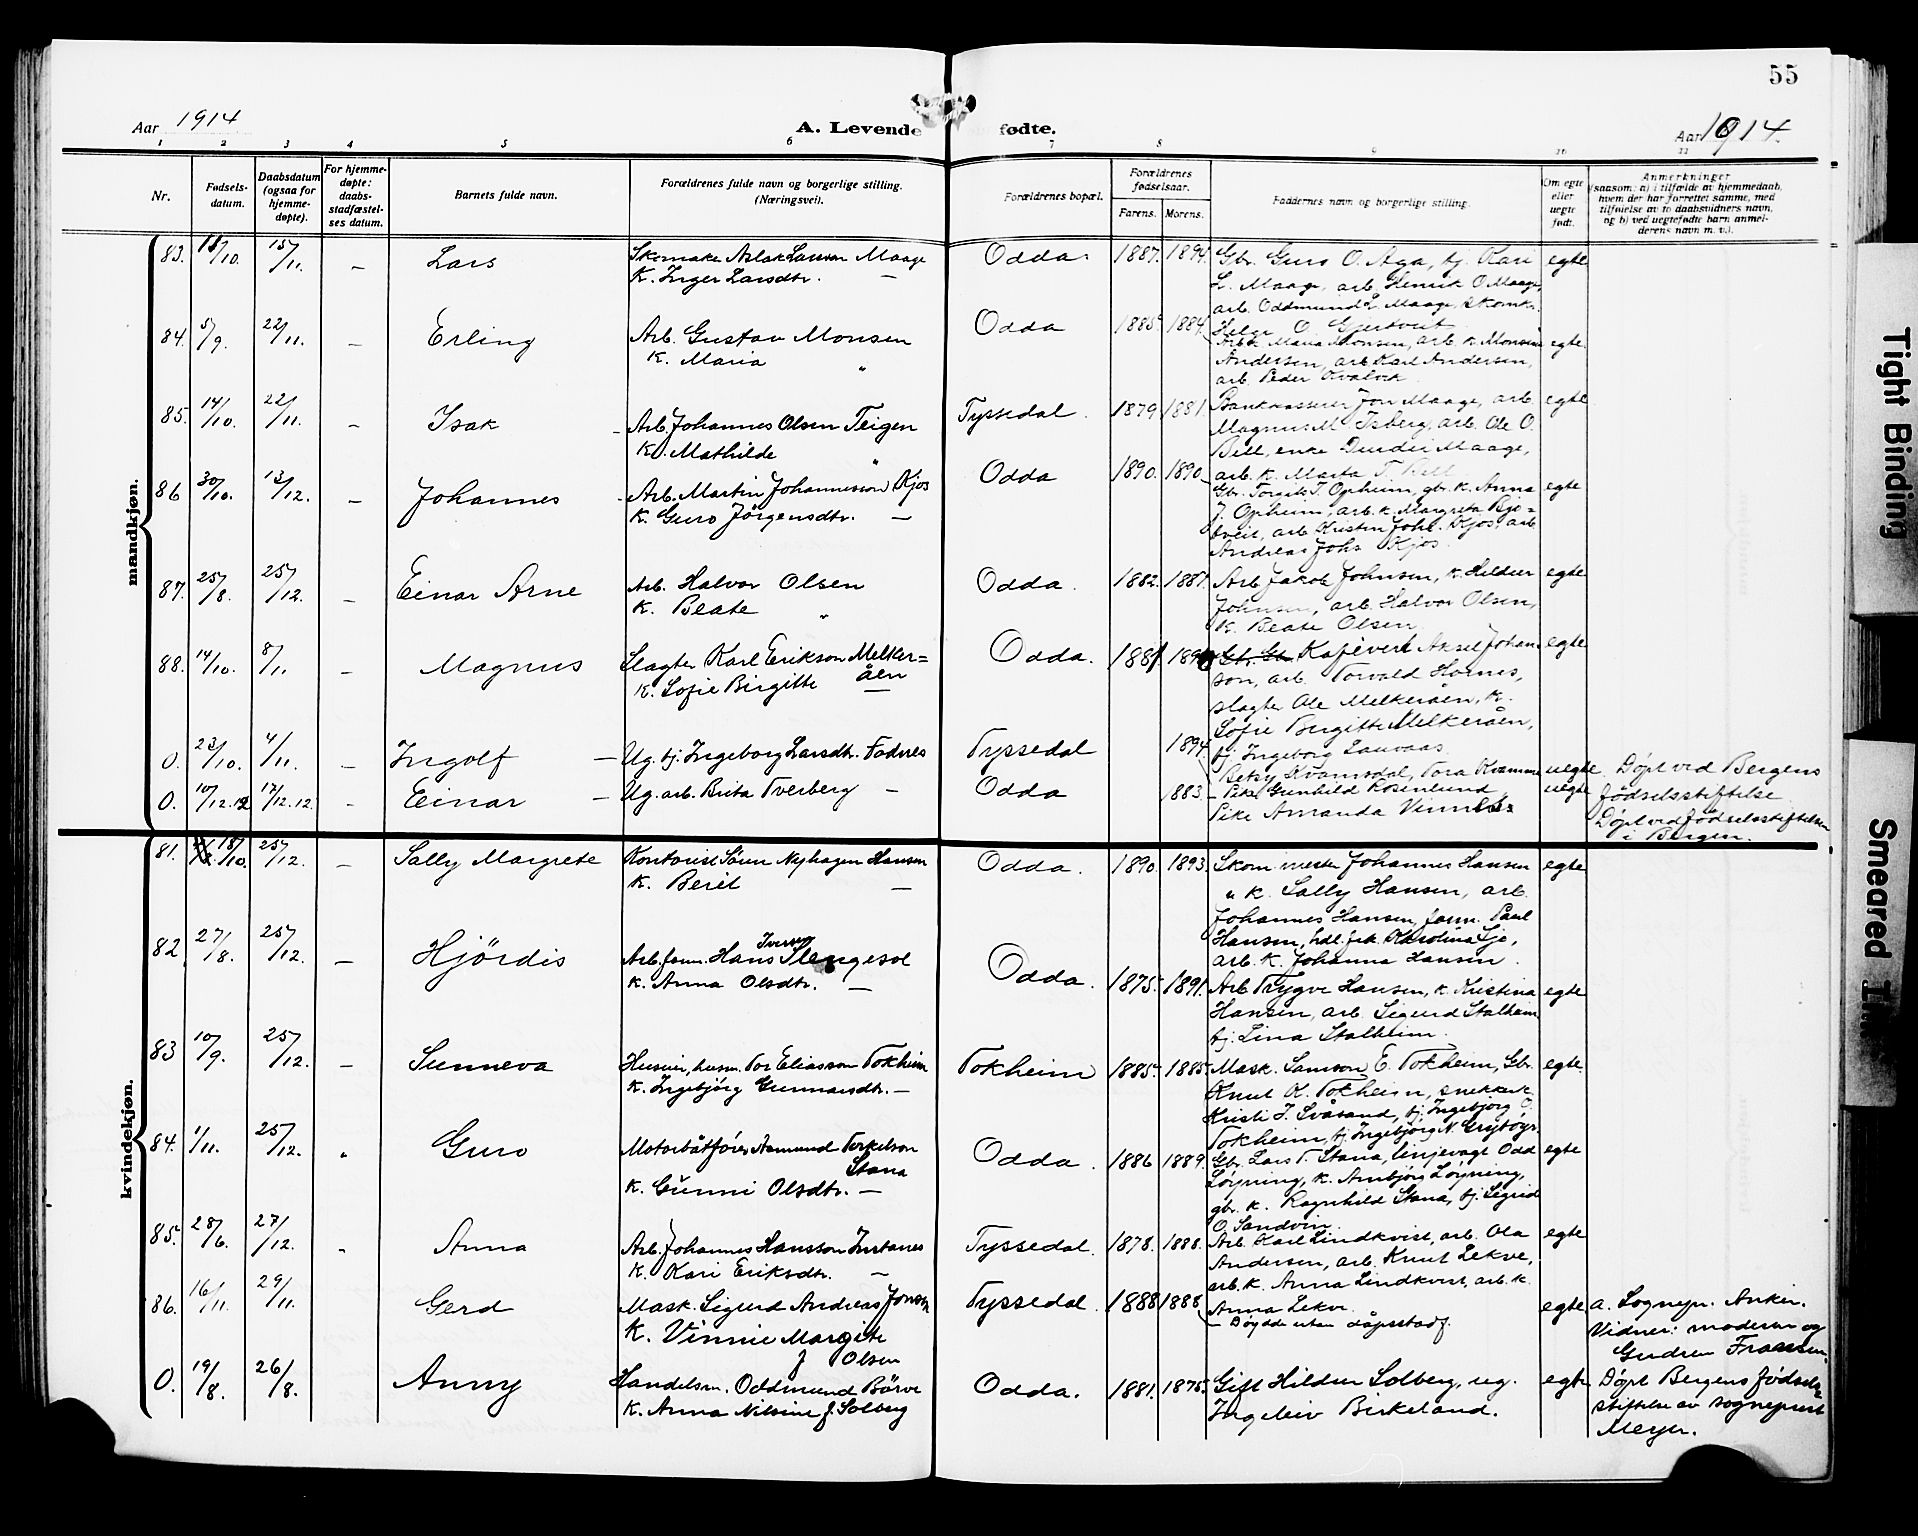 55
Aar 1914
A. Levende fødte.
Aar 1914.
1 2 3 4 5 6 7 8 9 10 11
Nr.
Fødsels-
datum.
Daabsdatum
(ogsaa for
hjemme-
døpte).
For hjemme-
døpte:
daabs-
stadfæstel-
ses datum.
Barnets fulde navn.
Forældrenes fulde navn og borgerlige stilling.
(Næringsvei).
Forældrenes bopæl.
Forældrenes
fødselsaar.
Farens. Morens.
Faddernes navn og borgerlige stilling.
Om egte
eller
uegte
født.
Anmerkninger
(saasom: a) i tilfælde av hjemmedaab,
hvem der har forrettet samme, med
tilføielse av to daabsvidners navn,
og b) ved uegtefødte barn anmel-
derens navn m. v.).
mandkjøn.
83. 15/11. – Lars
Skomaker Aslak Larsen Maage
K. Inger Larsdtr. –
Odda. 1887. 1894.
Gbr. Guro O. Aga, tj. Kari
L. Maage, arb. Henrik O Maage,
arb. Oddmund L Maage, skomkr.
Helge O. Gjertveit
egte
84. 5/9. 22/11. – Erling
Arb. Gustav Monsen
K. Maria „
Odda 1885. 1884.
Arb. k. Maria Monsen, arb. k. Monsine
Andersen, arb. Karl Andersen,
arb. Peder Kvalvik
egte.
85. 14/10. 22/11. – Isak
Arb. Johannes Olsen Teigen
K. Mathilde „
Tyssedal. 1879 1881.
Bankkasserer Jon Maage, arb.
Magnus M. Isberg, arb. Ole O.
Bell, enke Maage,
arb. k. Marta T. Bell
egte
86 30/10. 13/12. – Johannes
Arb. Martin Johannesson Kjos
K. Guro Jörgensdtr. –
Odda 1890. 1890.
Gbr. Torgils T. Opheim, gbr. k. Anna
J. Opheim, arb. k. Margreta
arb. Kristen Johs. Kjos, arb
Andreas Johs Kjos.
egte
87. 25/8. 25/12. – Einar Arne
Arb. Halvor Olsen
K. Beate „
Odda. 1882. 1887.
Arb Jakob Johnsen, k. Hildur
Johnsen, arb. Halvor Olsen,
K. Beate Olsen
egte
88. 14/10. 8/11. – Magnus
Slagter Karl Erikson Melker=
åen
K. Sofie Birgitte –
Odda. 1881
Kafévert Aksel Johan
son, arb. Torvald Hornes,
slagter Ole Melkeråen, k.
Sofie Bergitte Melkeråen,
tj. Ingeborg Lauvaas
egte
0. 23/10. 4/11. – Ingolf –
Ug. tj. Ingeborg Larsdtr. Fodnes
Tyssedal 1894.
Betsy Kvamsdal, Tora Kvamme
uegte. Døpt ved Bergens
fødselsstiftelse
0. 10/12.12 17/12.12. – Einar –
Ug. arb. Brita Tverberg –
Odda 1883.
– Pike Gunhild Rosenlund
Pike Amanda
uegte
Døpt ved fødselsstiftelsen
i Bergen.
kvindekjøn.
81. 18/10. 25/12. – Sally Margrete
Kontorist Sören Nyhagen Hansen
K. Berit –
Odda. 1890. 1893.
Skom. mester Johannes Hansen
„ k. Sally Hansen, arb.
Johannes Hansen, form. Paul
Hansen, hdl. frk. Karolina Lje,
arb. k. Johanna Hansen.
egte
82 27/8. 25/12. – Hjördis
Iversen
Arb. form. Hans Slengesol
K. Anna Olsdtr. –
Odda. 1875. 1891.
Arb Trygve Hansen, k. Kristina
Hansen, arb. Sigurd Stalheim
tj. Lina Stalheim.
egte
83 10/9. 25/12. – Sunneva
Tor Eliasson Tokheim
K. Ingebjörg Gunnarsdtr. –
Tokheim 1885. 1885.
Mask. Samson E. Tokheim, Gbr.
Knut K. Tokheim, snekker k
Kristi J. Svåsand, tj. Ingebjörg O.
Tokheim, tj. Ingebjörg N.
egte.
84. 1/11. 25/12. „ Guro
Motorbåtförer Aamund Torkelson
Stana
K. Gunni Olsdtr. –
Odda. 1886 1889.
Gbr. Lars T. Stana, linjevagt Odd
Löyning, k. Ambjörg Löyning,
gbr. k. Ragnhild Stana, tj. Sigrid
O. Sandvin.
egte
85. 28/6. 27/12. „ Anna
Arb. Johannes Hansson Instanes
K. Kari Eriksdtr. –
Tyssedal. 1878. 1888.
Arb. Karl Lindkvist, arb. Ola
Andersen, arb. Knut Lekve,
arb. k. Anna Lindkvist, arb. k.
Anna Lekve.
egte
86. 16/11. 29/11. Gerd
Mask. Sigurd Andreas Jonson
K. Vinnie Margit
f Olsen
Tyssedal 1888 1888.
– Döydde utan dåpsstadf.
egte. a. Sognepr. Anker.
Vidner: moderen og
Gudrun Fransen.
0. 19/8. 26/8. Anny
Handelsm. Oddmund Börve
K. Anna Nilsine f. Solberg
Odda. 1881. 1875.
Gift Hildur Solberg, ug.
Ingeleiv Birkeland.
egte Døpt Bergens fødsels
stiftelse av sogneprest
Meyer.
Tight Binding
Smeared